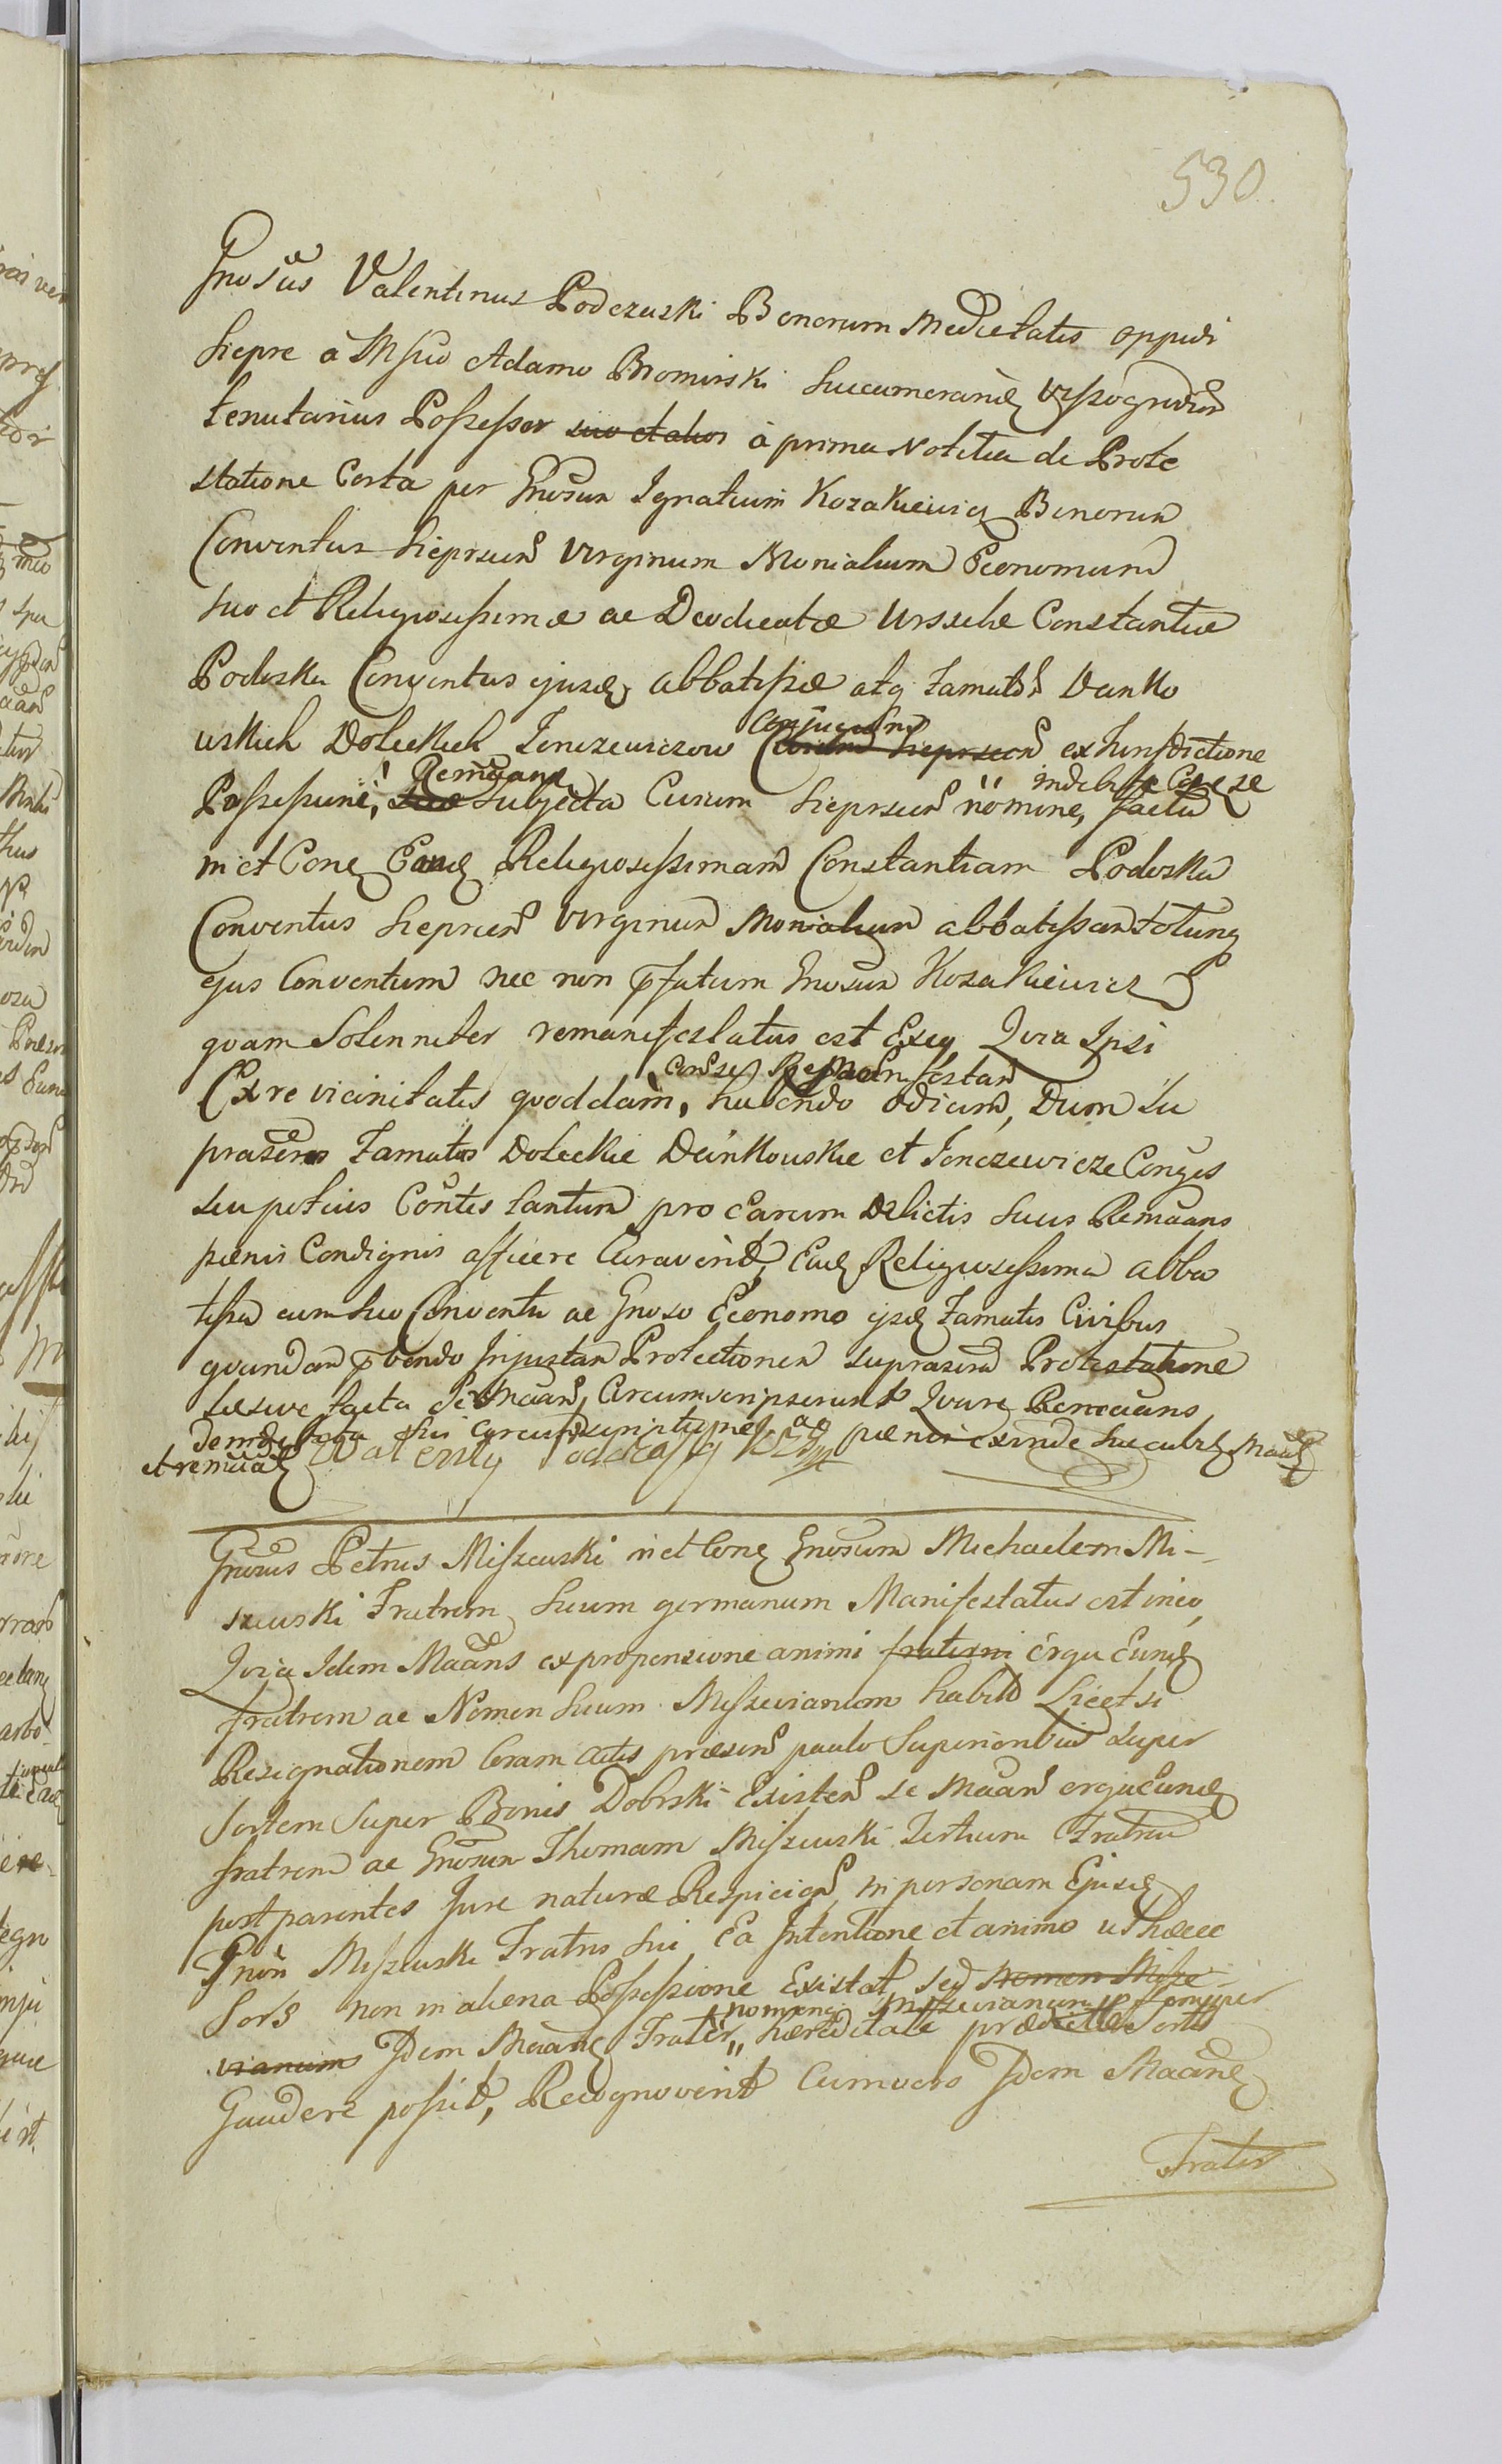 530.
Gnosus Valentinus Podczaski Bonorum Medietatis oppidi
Sieprc à Msco Adamo Bromirski Succamerario Wyszogrodien
tenutarius Possessor suo et alior à prima Notitia de Prote
statione Certa per Gnosum Ignatium Kozakiewicz Bonorum
Conventus Sieprscen Virginum Monialium Œconomum
suo et Religiosissimæ ac Deodicatæ Urssulæ Constantiæ
Podoska Conventus ejusd abbatissæ atq famator Dunko
wskich Doleckich Jenczewiczow Conjugum Civium Sieprscen ex Jurisdictione
Possessune, Remaans suæ Subjecta Civium Sieprscen nomine, indebite Coram se facta
in et Cone Eand Religiosissimam Constantiam Podoska
Conventus Sieprcen Virginum Monialium abbatissam totumq
ejus Conventum nec non pfatum Gnosum Kozakiewicz
quam Solenniter remanifestatus est Exeo Quia Ipsi
Ex re vicinitatis quoddam, Conse Remanifestan habendo odium, Dum Su
prascros famatos Doleckie Dunkowskie et Jenczewicze Conjges
seu potius Contes tantum pro earum Delictis Suus Remaans
pænis Condignis afficere Curaverit, Ead Religiosissima abba
tissa cum suo Conventu ac Gnoso Economo ijsd famatis Civibus
quandam pbendo Injustam Protectionem suprascrm Protestatione
suesive facta Se Maan, Circumscripserunt Quare Remaans
de indebita sui circumscriptione ac pænis exinde succubit Maan
et remaat Walenty Podczaski
Gnosus Petrus Miszewski in et Cone Gnosum Michaelem Mi-
szewski Fratrem Suum germanum Manifestatus est in eo,
Quia Idem Maans ex propensione animi fraterni erga Eund
fratrem ac Nomen Suum Miszevianum habito Licet si
Resignationem Coram Actis præsen paulo Superioribus super
Sortem Super Bonis Dobrski Existen se Maan erga Eund
fratrem ac Gnosum Thomam Miszewski tertium Fratrem
post parentes Jure naturæ Respicien in personam Ejusd
Gnosi Miszewski Fratris Sui Ea Intentione et animo ut hæcce
Sors non in aliena Possessione Existat sed Nomen Misze-
vianum Idem Maans Frater, nomen Miszevianum hæreditate prædictæ Sortis
Gaudere possit, Recognoverit Cum vero Idem Maans
Frater